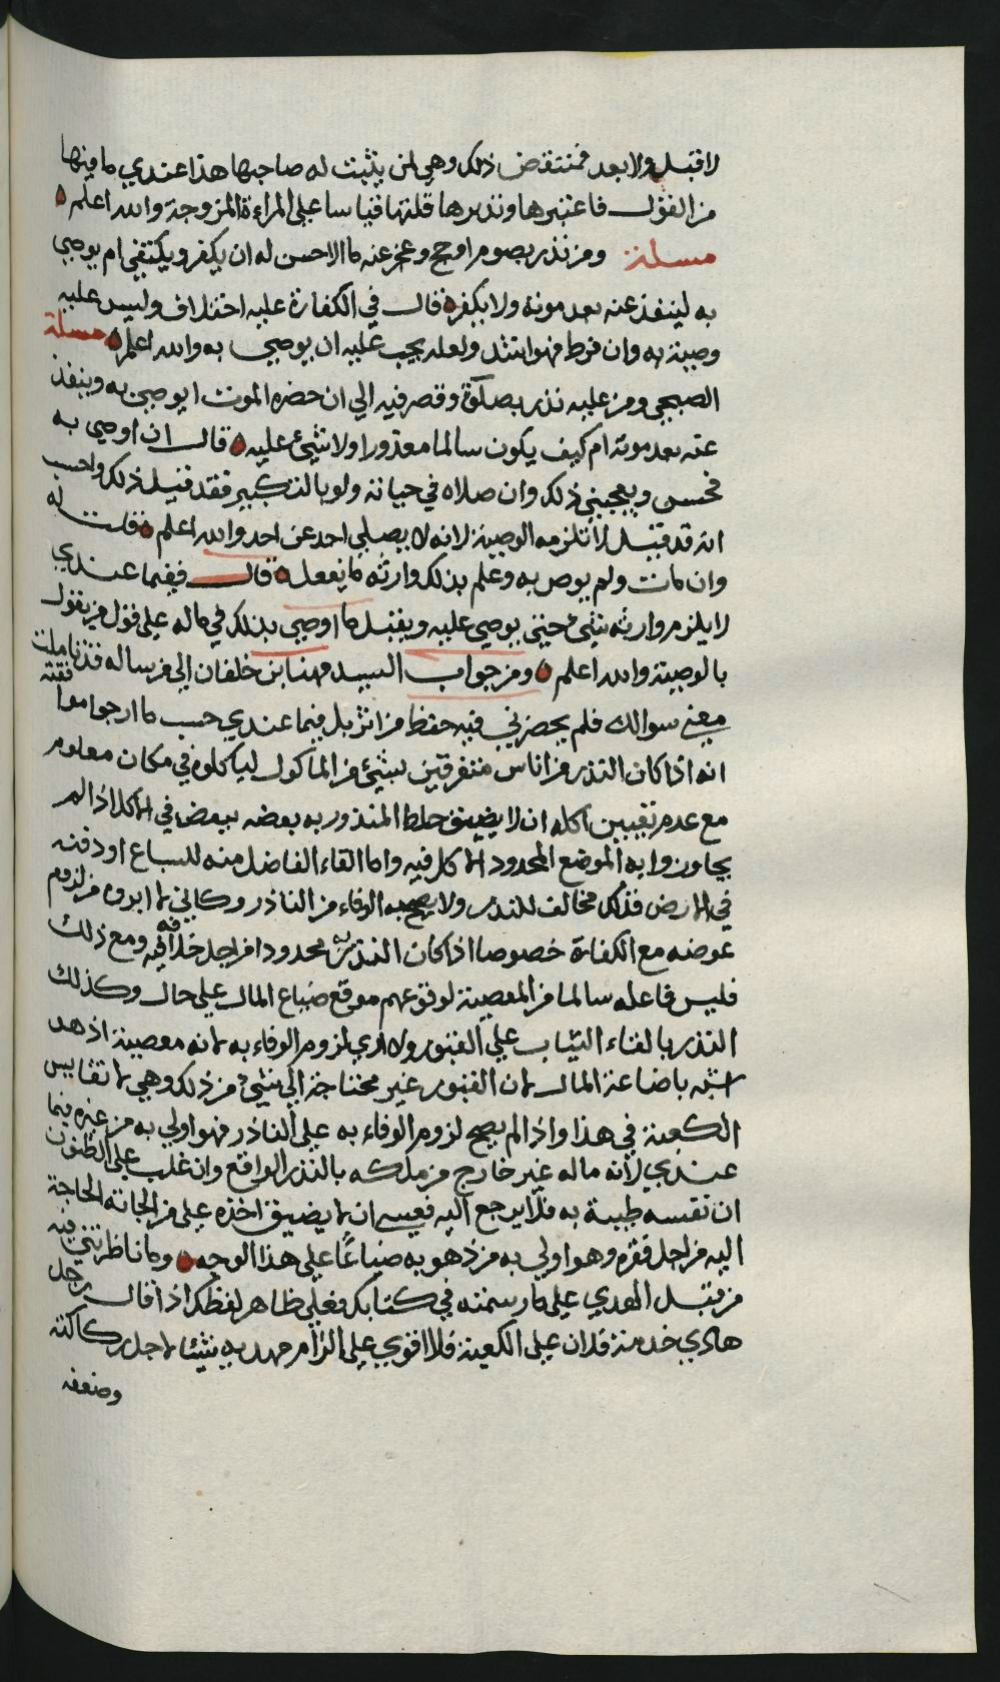 لا قبل ولا بعد فمنتقض ذلك وهي لمن يثبت له صاحبها هذا عندي ما فيها
من القول فاعتبرها وتدبرها قلتها قياسا على المراءة المزوجة والله اعلم
مسلة ومن نذر بصوم او حج وعجز عنه ما الاحسن له ان يكفر ويكتفي ام يوصي
به لينفذ عنه بعد موته ولا يكفر قال في الكفارة عليه اختلاف وليس عليه
وصية به وان فرط فهو اشد ولعله يجب عليه ان يوصي به والله اعلم مسلة
الصبحي ومن عليه نذر بصلاة وقصر فيه الي ان حضره الموت ايوصي به وينفذ
عنه بعد موته ام كيف يكون سالما معذورا ولا شيئ عليه قال ان اوصي به
فحسن ويعجبني ذلك وان صلاه في حياته ولو بالتكبير فقد قيل ذلك واحسب
انه قد قيل لا تلزمه الوصية لانه لا يصلي احد عن احد والله اعلم قلت له
وان مات ولم يوص به وعلم بذلك وارثه ما يفعل قال ففيما عندي
لا يلزم وارثه شيئ حتي يوصي عليه ويقبل ما اوصي بذلك في ماله على قول من يقول
بالوصية والله اعلم ومن جواب السيد مهنا بن خلفان الي من ساله قد تاملت
معني سوالك فلم يحضرني فيه حفظ من اثر بل فيما عندي حسب ما ارجو موافقته
انه اذا كان النذر من اناس متفرقين بشيئ من الماكول لياكلوه في مكان معلوم
مع عدم تعيين اكله ان لا يضيق خلط المنذور به بعضه ببعض في الاكل اذا لم
يجاوزوا به الموضع المحدود الاكل فيه واما القاء الفاضل منه للسباع او دفنه
في الارض فذلك مخالف للنذر ولا يصح به الوفاء من الناذر وكاني لا ابروه من لزوم
عوضه مع الكفارة خصوصا اذا كان النذر به محدودا من اجل خلافه فيه ومع ذلك
فليس فاعله سالما من المعصية لوقوعهم موقع ضياع المال علي حال وكذلك
النذر بالقاء الثياب علي القبور ولا اري لزوم الوفاء به لانه معصية اذ هو
اشبه باضاعة المال لان القبور غير محتاجة الي شيئ من ذلك وهي لا تقايس
الكعبة في هذا واذا لم يصح لزوم الوفاء به علي الناذر فهو اولي به من غيره فيما
عندي لانه ماله غير خارج من ملكه بالنذر الواقع وان غلب علي الظنون
ان نفسه طيبة به فلا يرجع اليه فعسي ان لا يضيق اخذه علي من الجاته الحاجة
اليه من اجل فقره وهو اولي به من ذهوبه ضياعًا علي هذا الوجه وما ناظرتني فيه
من قبل الهدي علي ما رسمته في كتابك فعلي ظاهر لفظك اذا قال رجل
هادي خدمة فلان علي الكعبة فلا اقوي علي الزامه هديه شيئا لاجل ركاكته
وضعفه